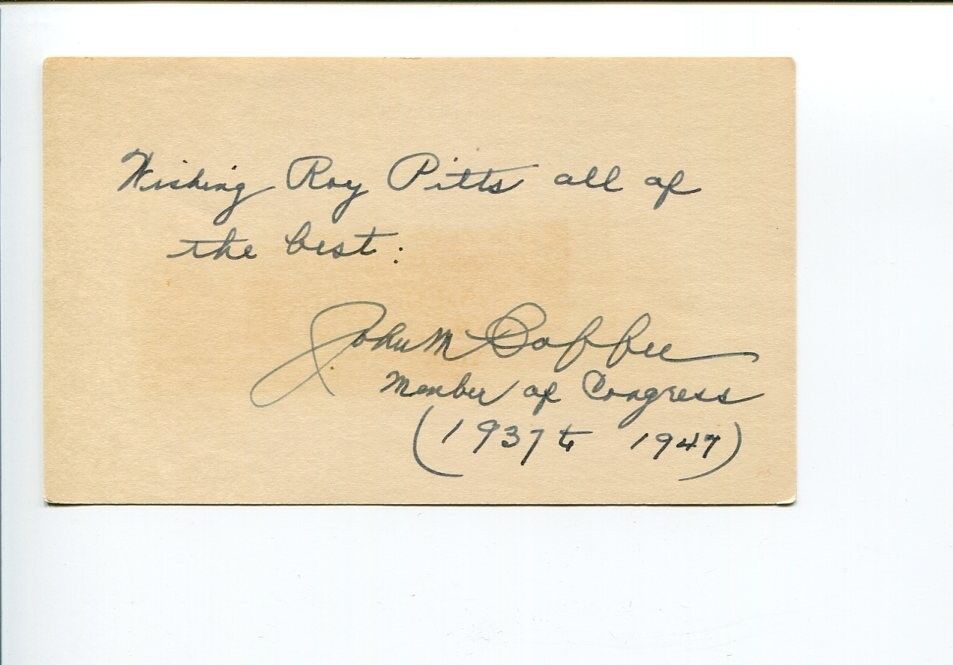 Wishing Roy Pitts all of
the best:
John M Coffee
Member of Congress
(1937 to 1947)